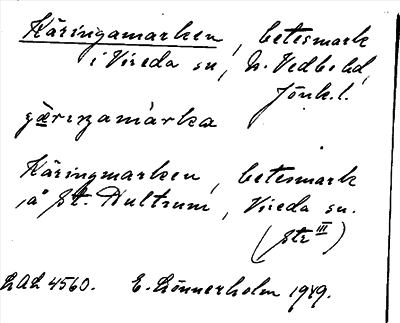 Käringamarken, betesmark
i Vireda sn, N. Vedbo hd,
Jönk. l.
Käringmarken, betesmark
å St. Hultrum, Vireda sn.
(str III)
LAL 4560. E. Lönnerholm 1949.